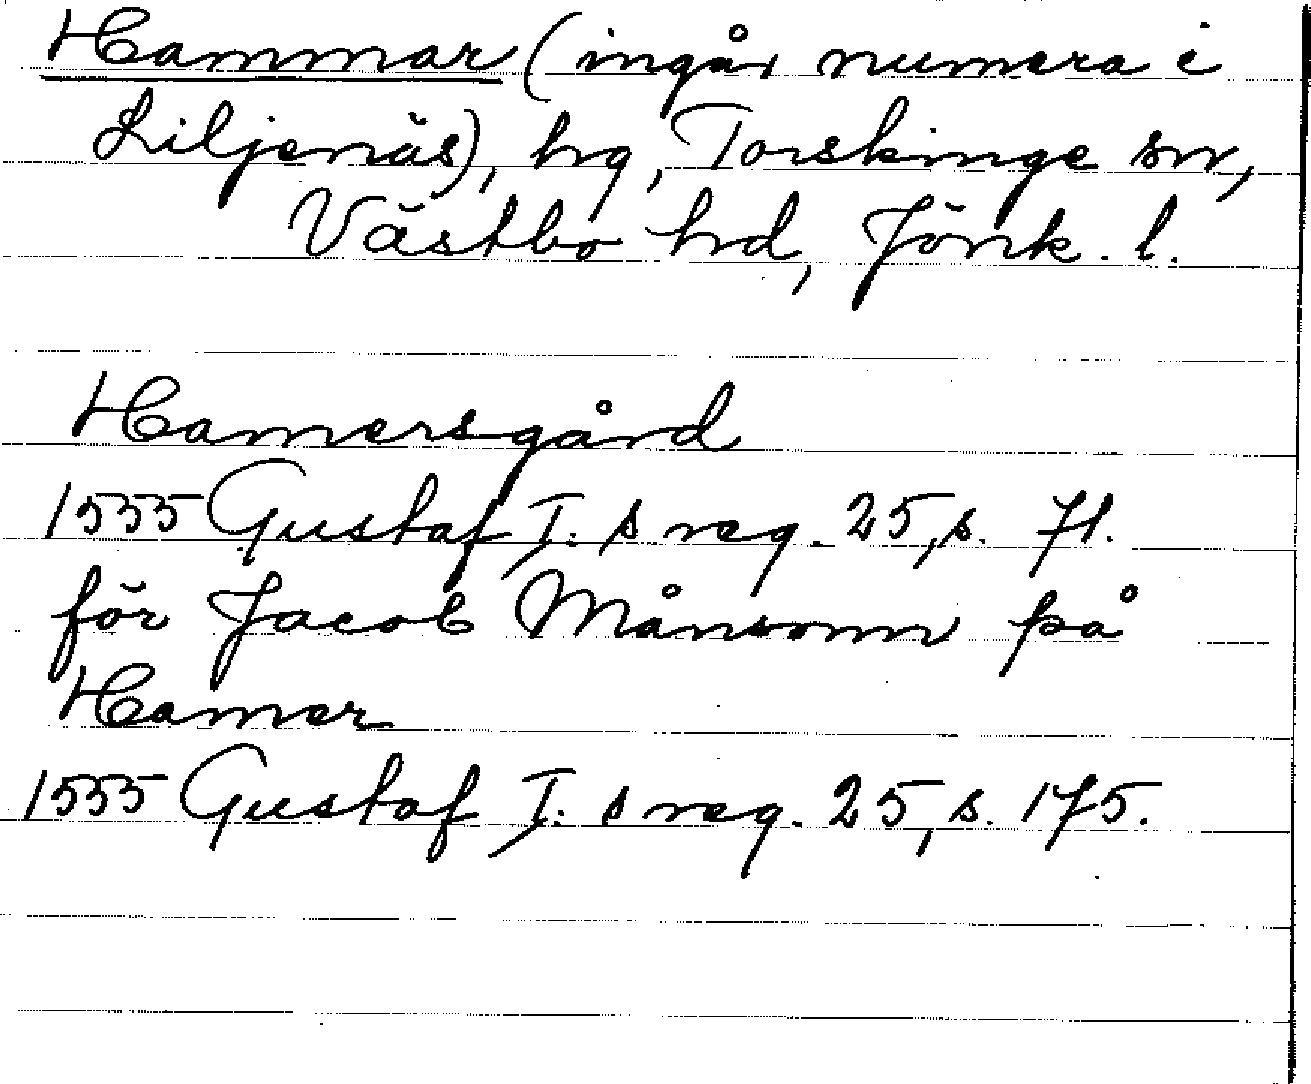 Hammar (ingår numera i
Liljenäs), hg, Torskinge sn,
Västbo hrd, Jönk. l.
Hamersgård
1555 Gustaf I:s reg. 25, s. 71.
för Jacob Månsonn på
Hamer
1555 Gustaf I:s reg. 25, s. 175.